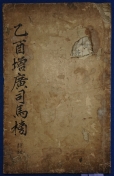 乙酉增廣司馬榜